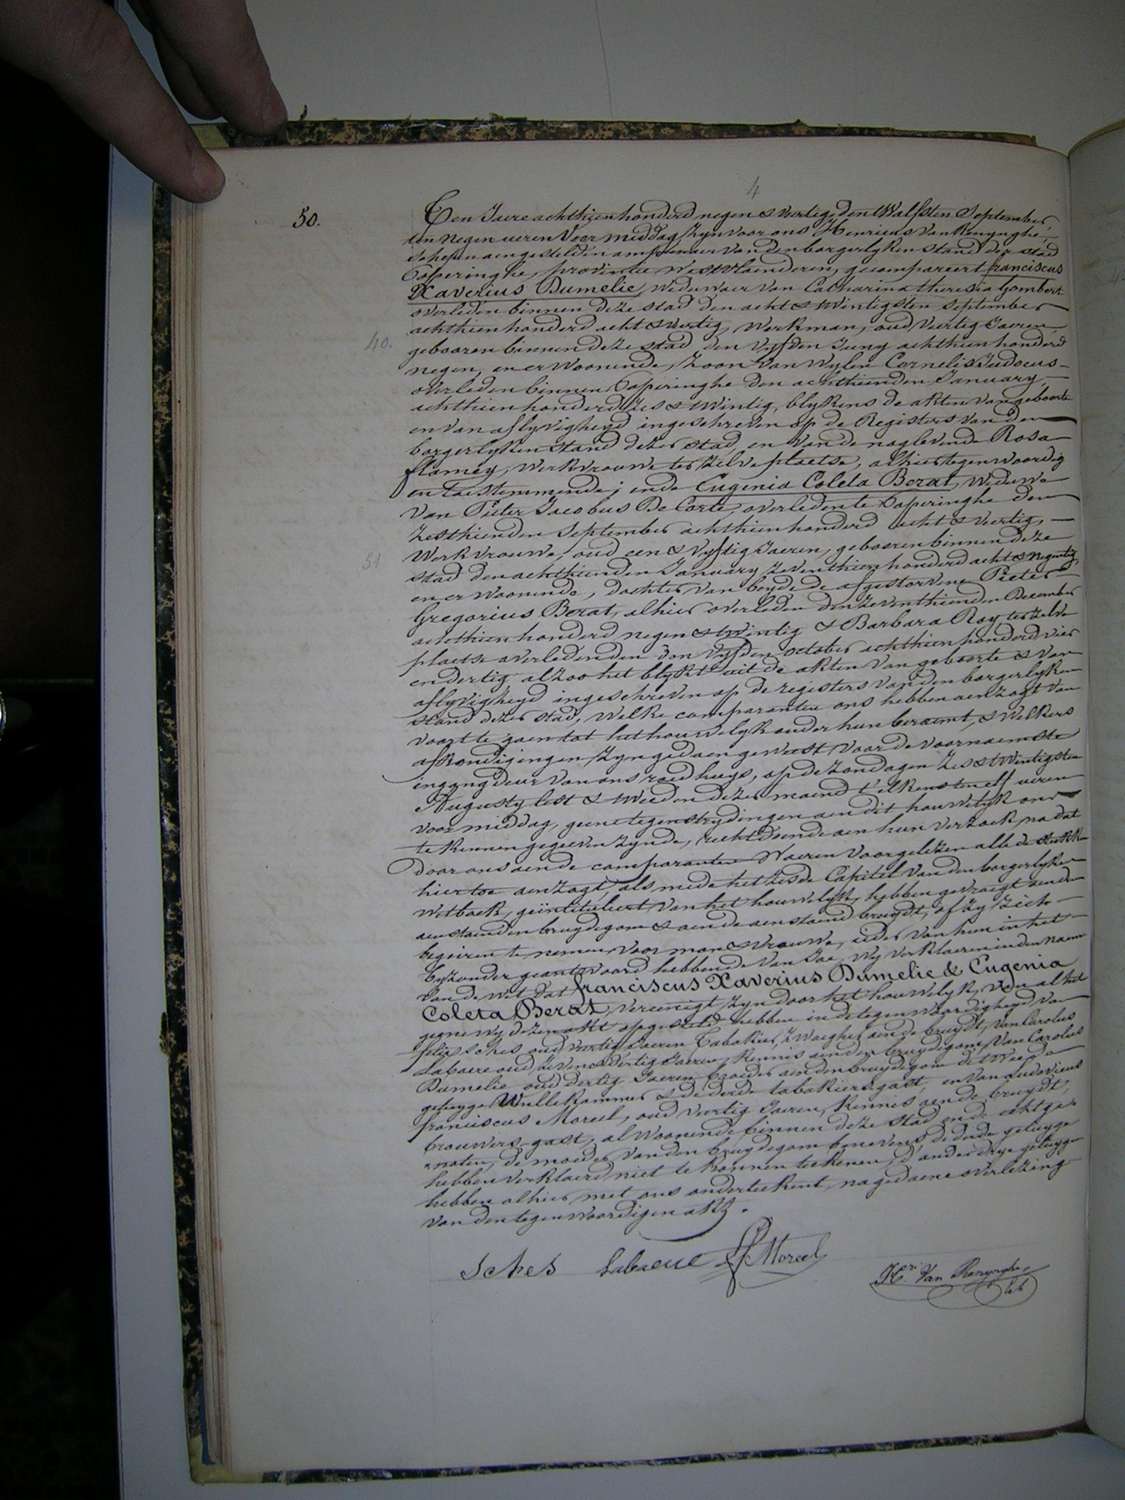 4
50.
Ten Jaere achthien honderd negen & veertig, den twalfsten September
ten negen ueren voor middag, zyn voor ons Henricus Van Renynghe,
schepen aengestelden amptenaer van den borgerlyken stand der stad
Poperinghe, provincie Westvlaenderen, gecompareert franciscus
Xaverius Dumelie, weduwaer van Catharina theresia Gombert
overleden binnen deze stad den acht & twintigsten september
achthien honderd acht & veertig, Werkman, oud veertig Jaeren,
40.
gebooren binnen deze stad den vyfden Juny achthien honderd
negen, en er woonende, zoon van wylen Cornelis Judocus
overleden binnen Poperinghe den achthienden January,
achthien honderd zes & twintig, blykens de akten van geboorte
en van aflyvigheyd ingeschreven op de Registers van den
borgerlyken stand dezer stad en van de naglevende Rosa
flamey, werkvrouwe ter zelve plaetse, alhier tegenwoordig
en toestemmende; ende Eugenia Coleta Berat, weduwe
van Pieter Jacobus De Corte, overleden te Poperinghe den
zesthienden September achthien honderd acht & veertig,
Werkvrouwe, oud een & vyftig Jaeren, gebooren binnen deze
51
stad den achthienden January zeventhien honderd acht & negentig
en er woonende, dochter van beyde de afgestorvene Pieter
Gregorius Berat, alhier overleden den zeventhienden December
achthien honderd negen & twintig & Barbara Roy, ter zelve
plaetse overleden den vyfden october achthien honderd vier
en dertig, alzoo het blykt uit de akten van geboorte & van
aflyvigheyd ingeschreven op de registers van den borgerlyken
stand dezer stad, welke comparanten ons hebben aenzogt van
voort te gaen tot het houwelyk onder hun beraemt, & welkers
afkondigingen zyn gedaen geweest voor de voornaemste
ingang deur van ons raedhuys, op de zondagen zes & twintigsten
Augusty lest & tweeden dezer maend t'elkens ten elf ueren
voor middag, geene tegenstrydingen aen dit houwelyk ons
te kennen gegeven zynde, recht doende aen hun verzoek, na dat
door ons aen de comparanten waeren voorgelezen alle de stukken
hier toe aenzogt, als mede het zesde Capitel van den borgerlyken
wetboek, geïntituleert van het houwelyk, hebben gevraegt aen den
aenstaenden bruydegom & aen de aenstaende bruydt, of zy zich
begeiren te nemen voor man & vrouwe, ider van hun in het
byzonder geantwoord hebbende van Jae, wy verklaeren in den naem
van de wet dat franciscus Xaverius Dumelie & Eugenia
Coleta Berat, vereenigt zyn door het houwelyk, van al het
gene wy dezen akt opgesteld hebben in de tegenwoordigheyd van
Sches, oud veertig Jaeren, tabakier, zwager aen de bruydt, van Carolus
Labaere oud zeven & dertig Jaeren, kennis aen den bruydegom, van Carolus
Dumelie oud dertig Jaeren, broeder aen den bruydegom de twee
getuyge Wullekammers & de derde tabakiers gast, en van Ludovicus
franciscus Moreel, oud veertig Jaeren, kennis aen de bruydt,
brouwers gast, al woonende binnen deze stad en de echtge-
nooten, de moeder van den bruydegom benevens de derde getuyge
hebben verklaerd niet te konnen teekenen, d'ander drye getuyge
hebben alhier met ons onderteekent, na gedaene overlezing
van den tegenwoordigen akt.
Sches Labaere LfMoreel
Hri Van Renynghe